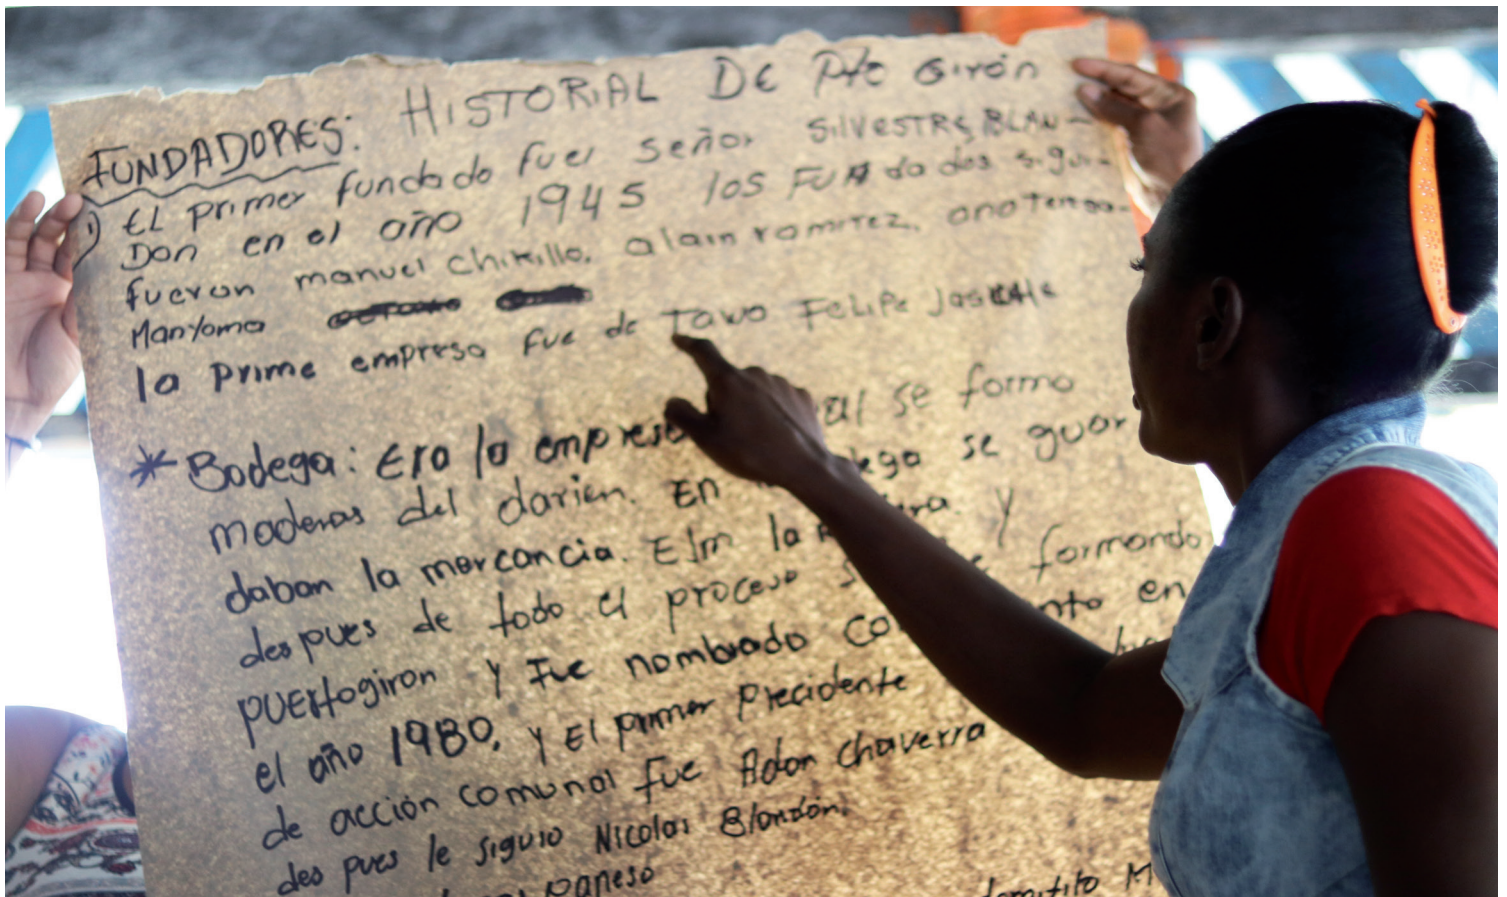 HISTORIAL DE Pto Girón
FUNDADORES:
1) EL primer fundado fuer señor SILVESTRE BLAN-
Don en el año 1945 los FUNdados sigui-
fueron manuel chirillo, alain ramirez, anatengo-
Manyoma
la prime empresa fue de Tavo Felipe
* Bodega: Era la empresa se formo
maderas del darien. En se guar
daban la mercancia. Elm la Y
despues de todo el proceso formando
puertogiron y Fue nombrado en
el año 1980, y El primer Precidente
de acción comunal fue Adan chaverra
des pues le siguio Nicolas Blandón.